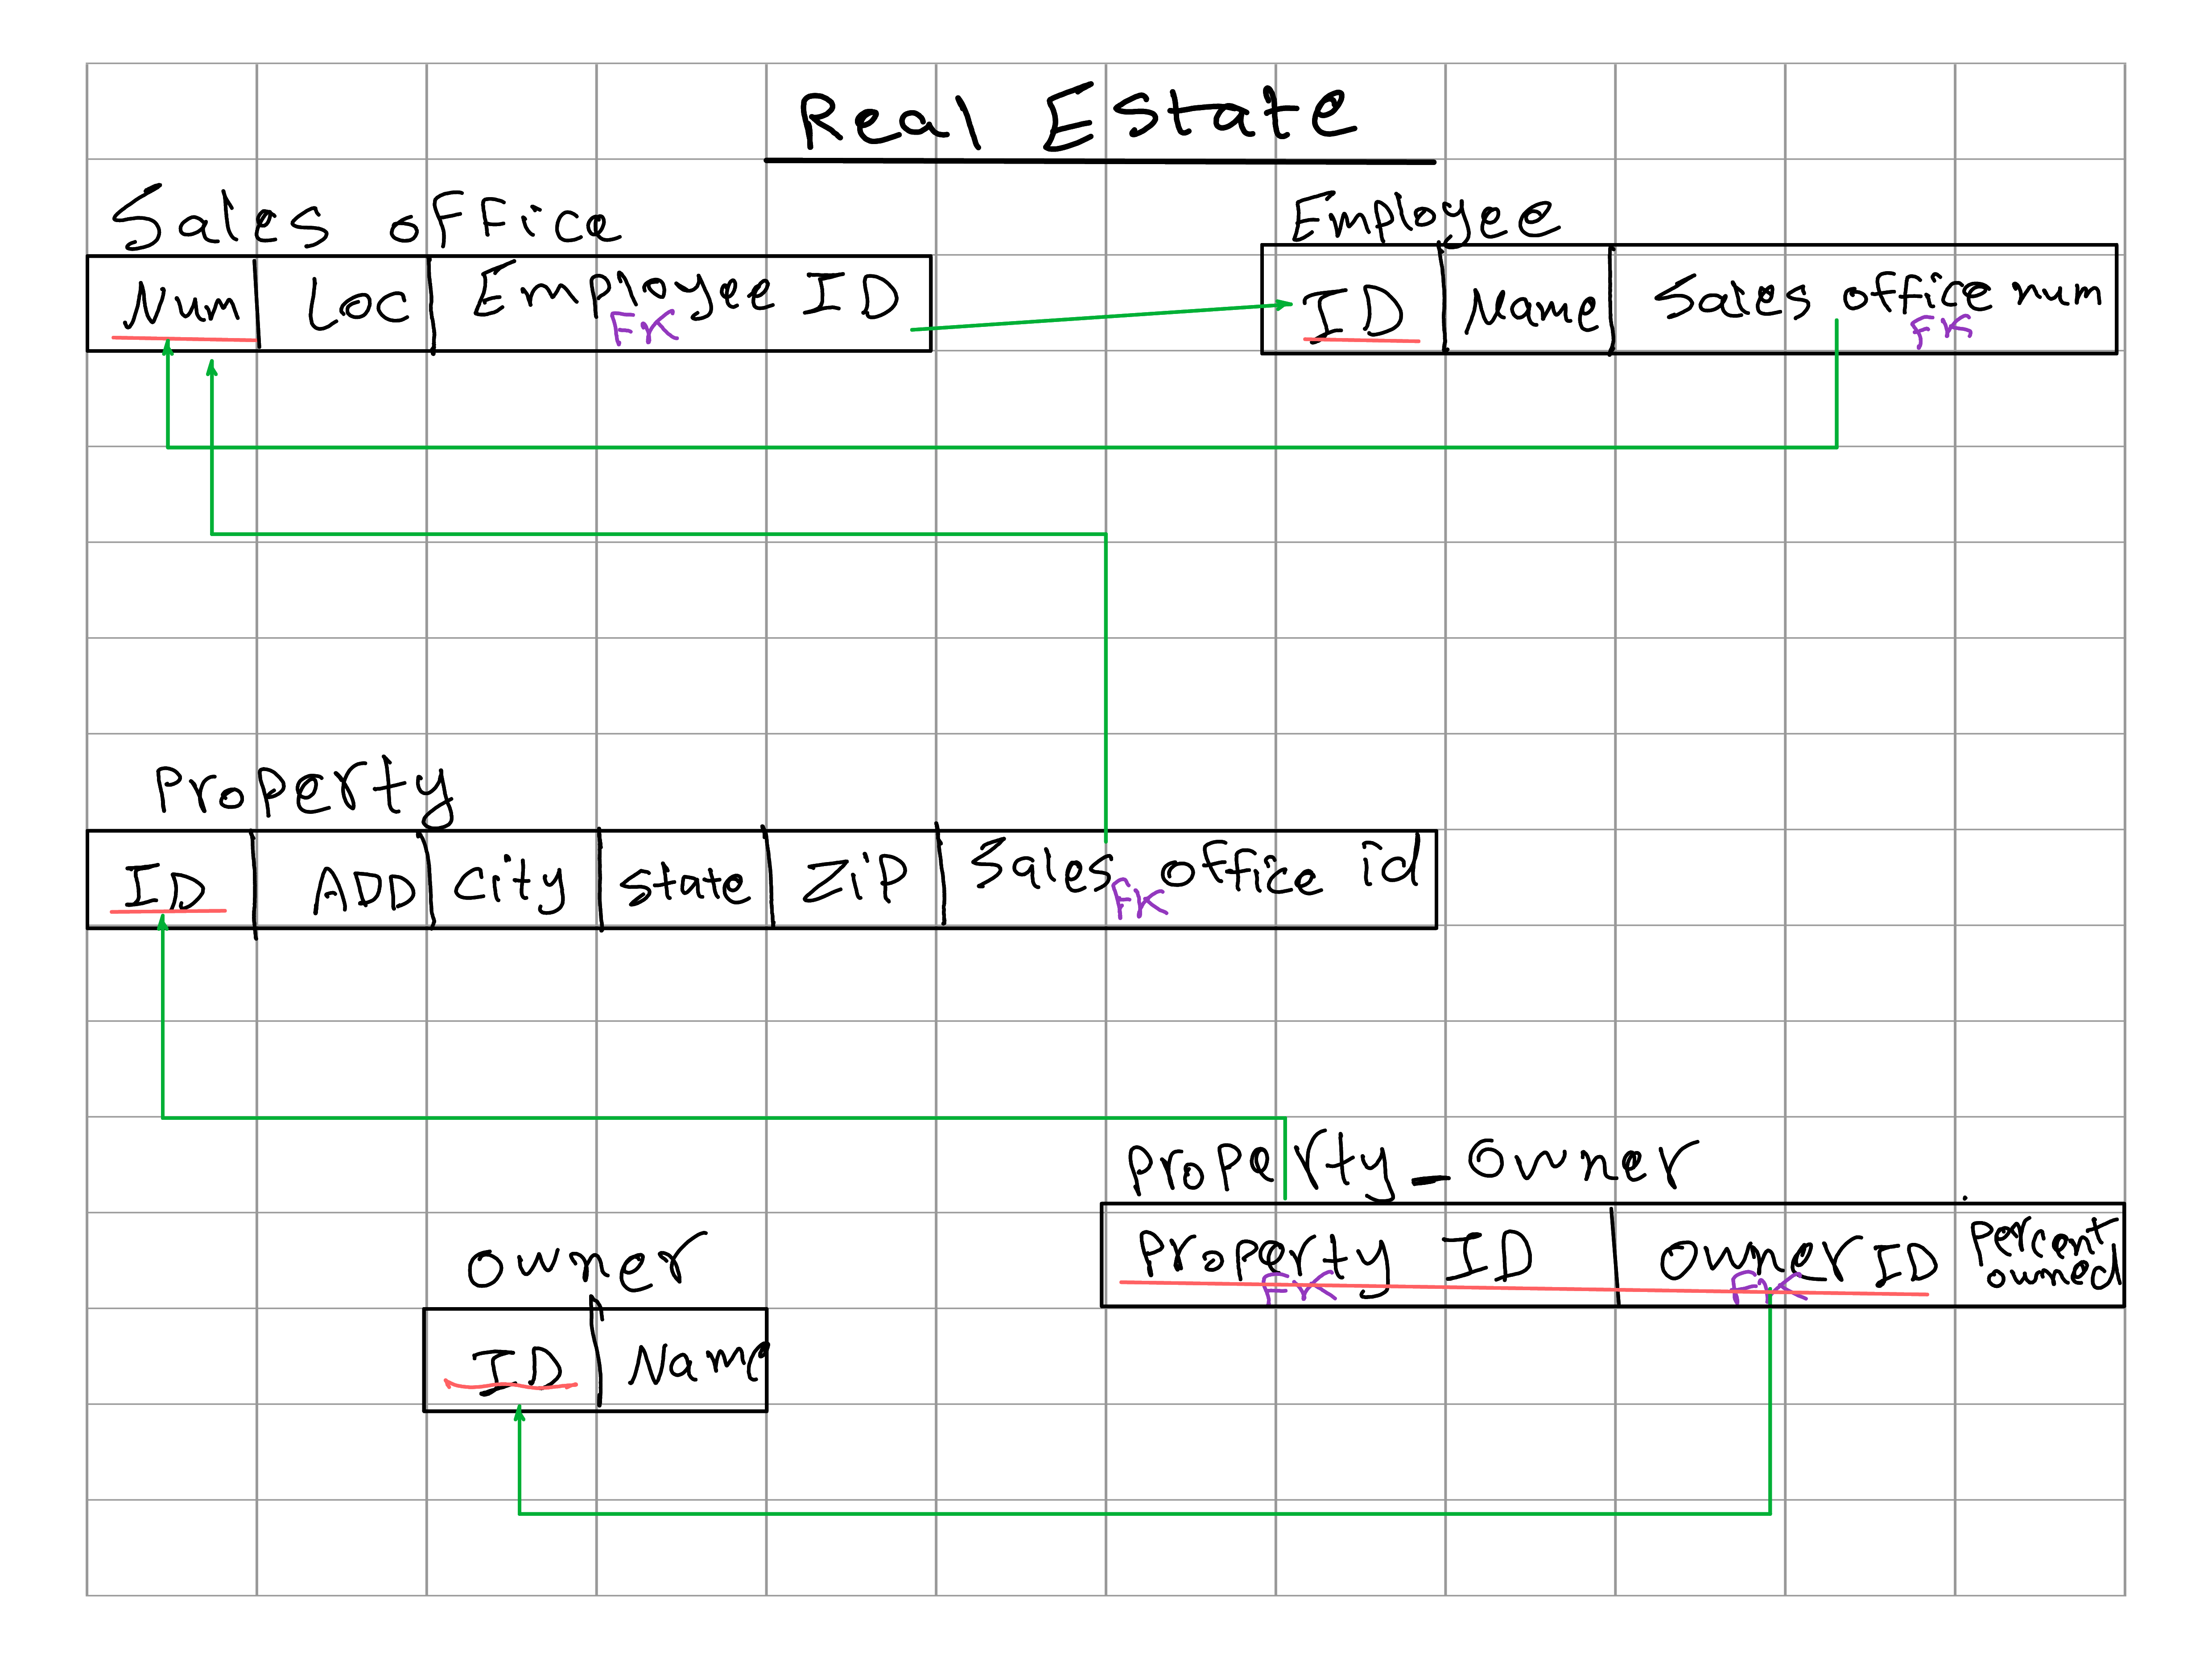 Real Estate
Sales office
Num Loc Employee ID
FK
Employee
ID Name Sales office num
FK
Property
ID ADD City state Zip Sales office id
FK
Property_Owner
Property ID Owner ID Percent owned
FK FK
owner
ID Name